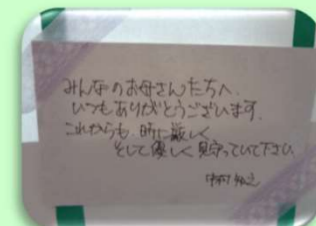 みんなのお母さんたちへ
いつもありがとうございます。
これからも 時に厳しく
そして優しく見守っていて下さい
中村